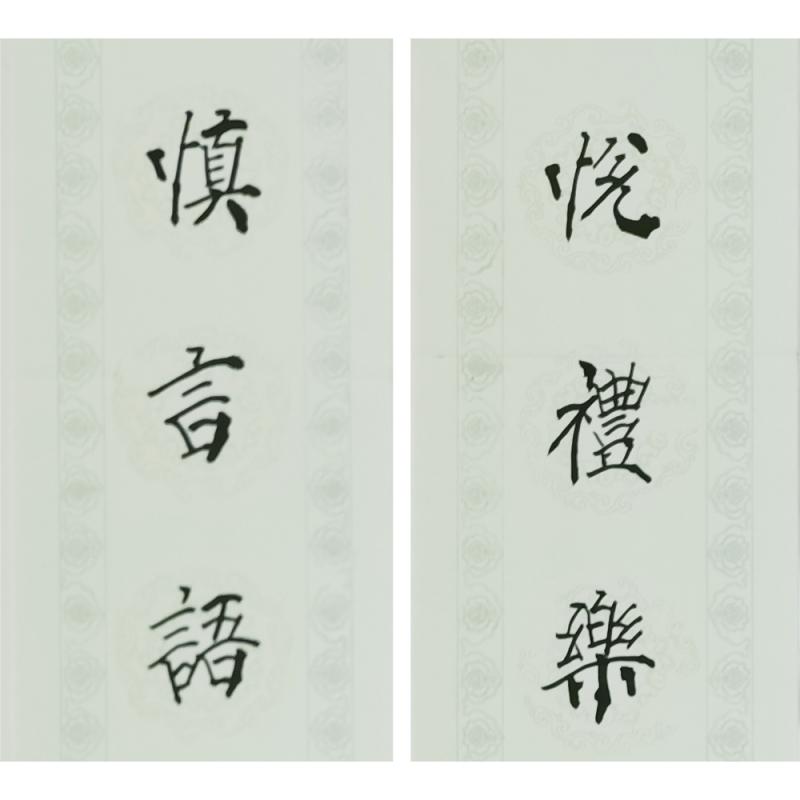 悦禮樂
慎言語